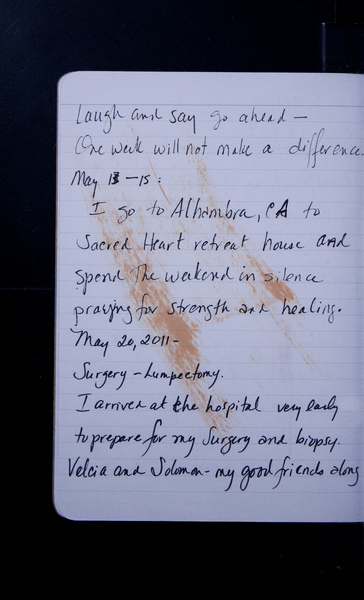 Laugh and say go ahead —
One week will not make a difference.
May 13 - 15 :
I go to Alhambra, CA to
Sacred Heart retreat house and
spend The weekend in silence
praying for strength and healing.
May 20, 2011 -
Surgery - Lumpectomy.
I arrived at the hospital very early
to prepare for my Surgery and biopsy.
Velcia and Solomon - my good friends along